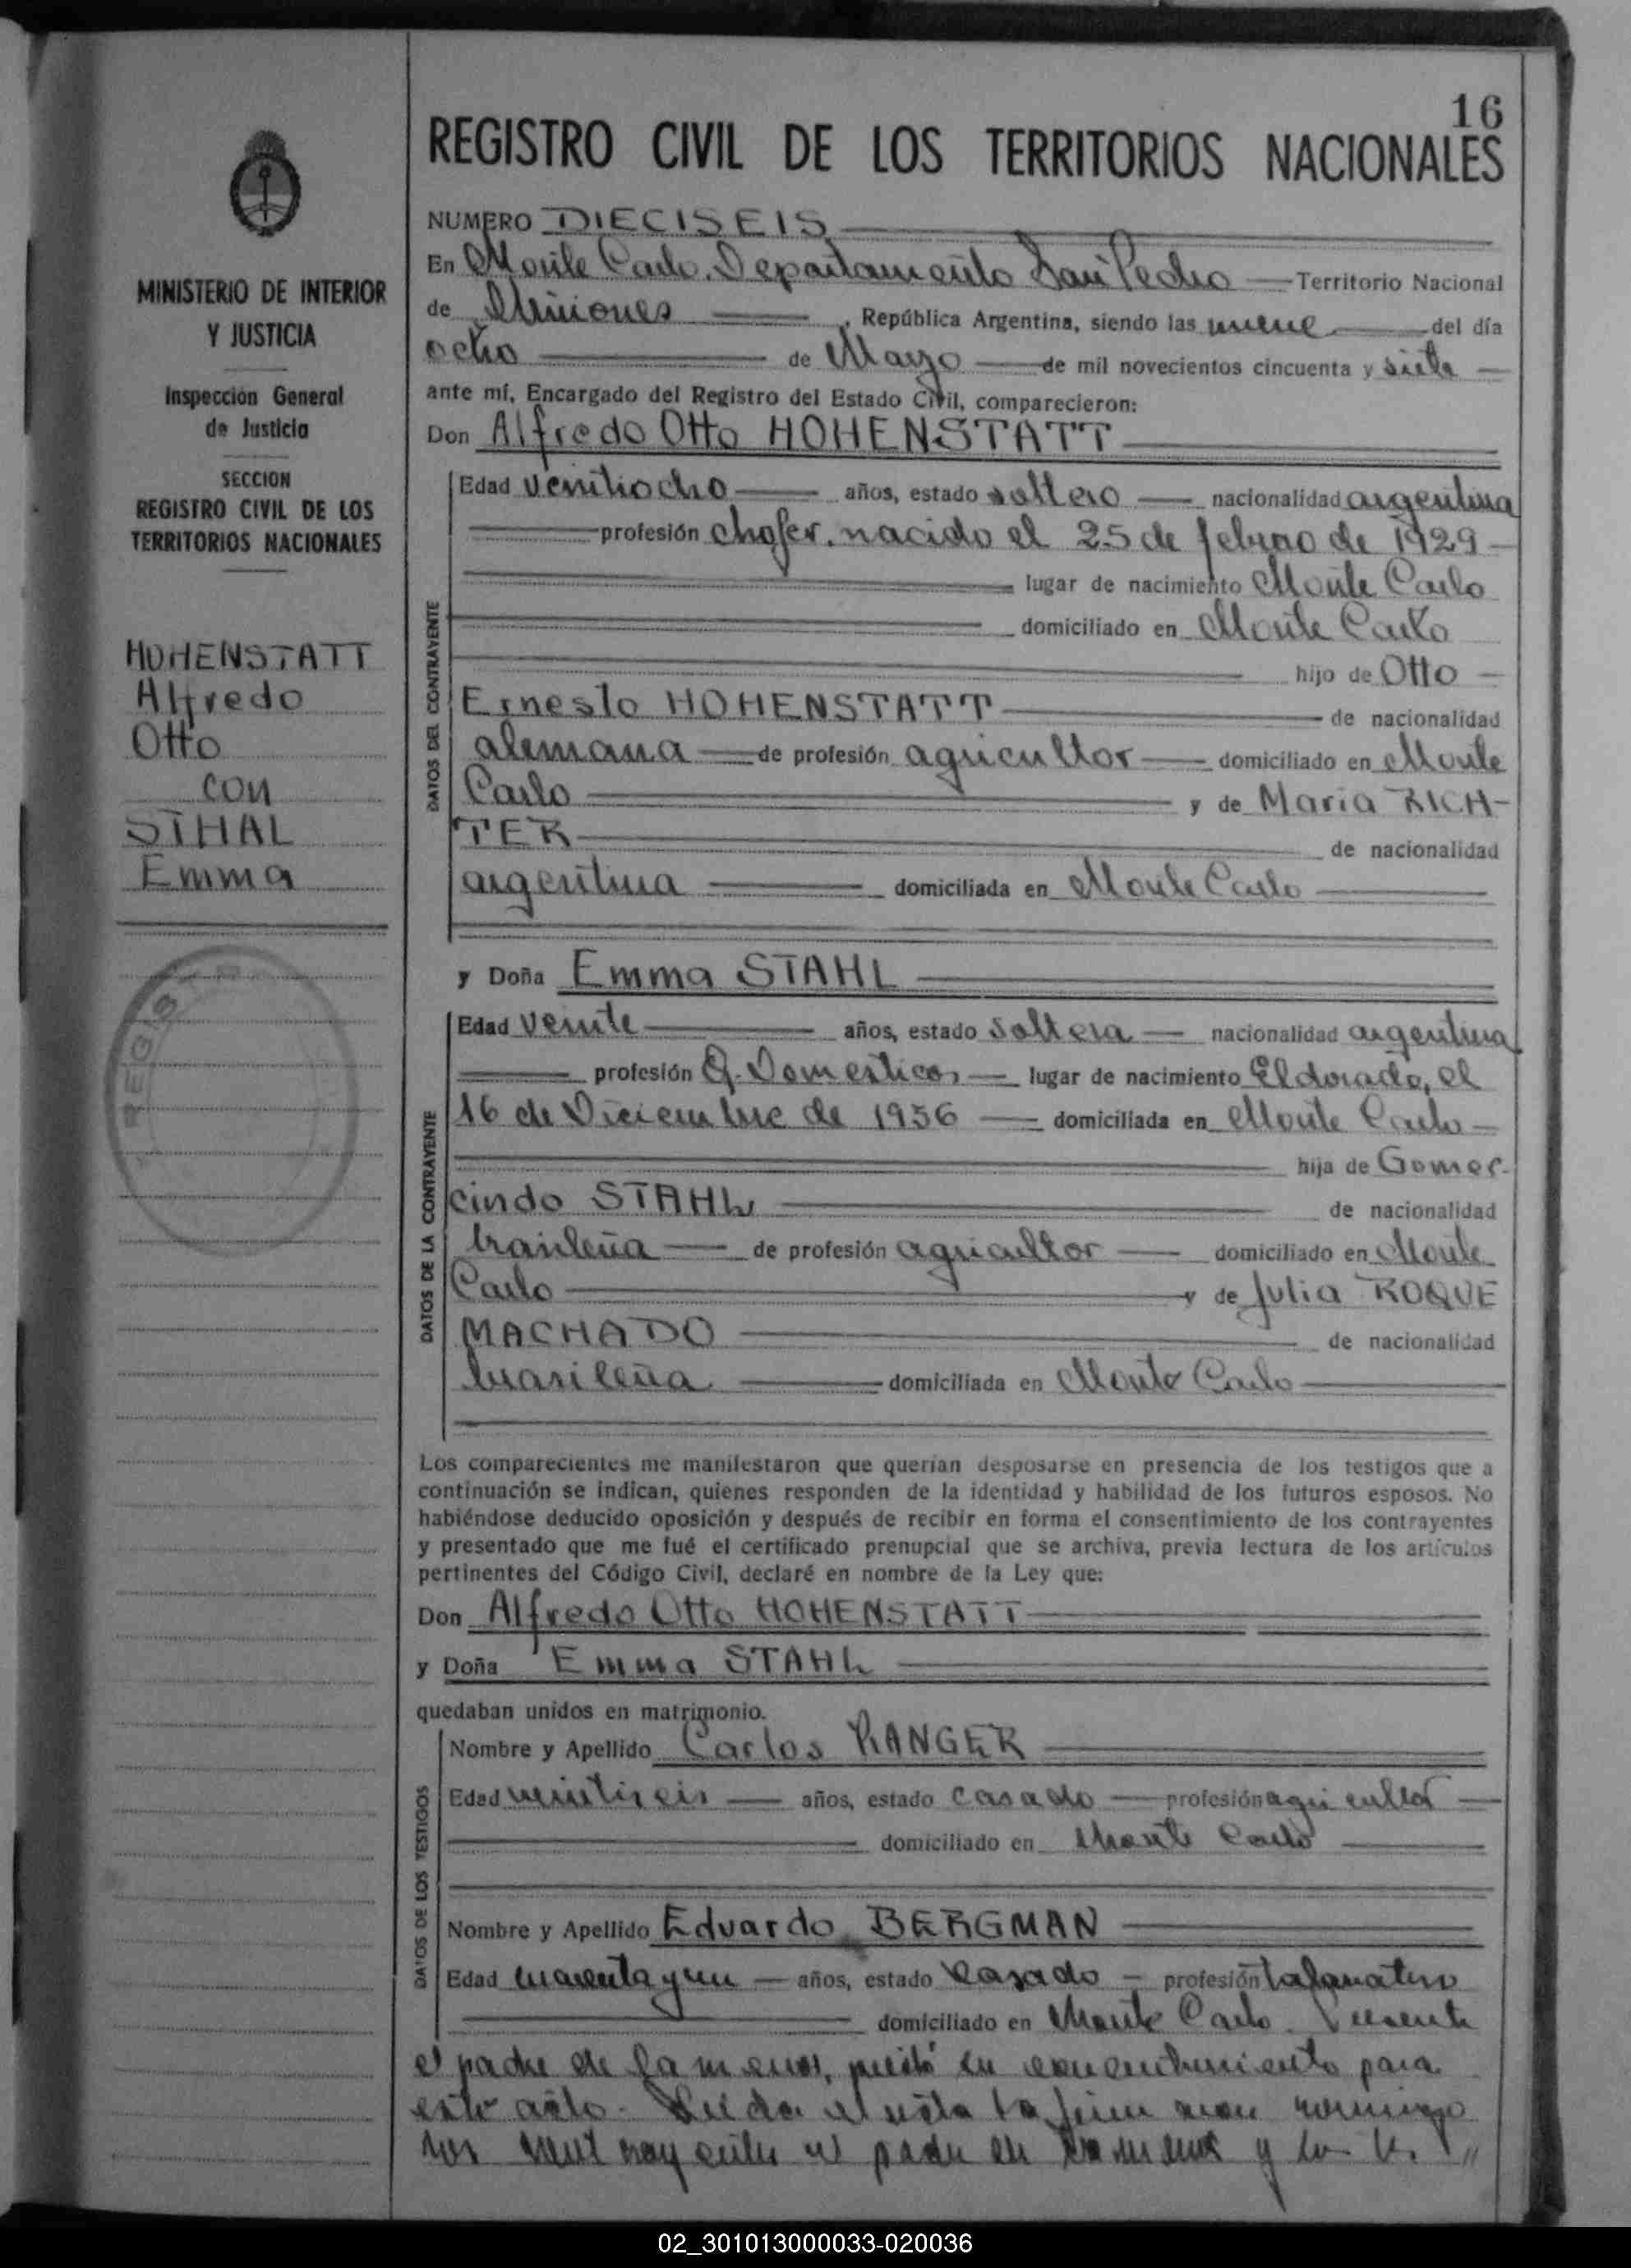 16
REGISTRO CIVIL DE LOS TERRITORIOS NACIONALES
MINISTERIO DE INTERIOR
Y JUSTICIA
Inspección General
de Justicia
SECCION
REGISTRO CIVIL DE LOS
TERRITORIOS NACIONALES
HOHENSTATT
Alfredo
Otto
con
STHAL
Emma
REGIS
NUMERO DIECISEIS
En Monte Carlo, Departamento San Pedro Territorio Nacional
de Misiones , República Argentina, siendo las nueve del día
ocho de Marzo de mil novecientos cincuenta y siete
ante mí, Encargado del Registro del Estado Civil, comparecieron:
Don Alfredo Otto HOHENSTATT
DATOS DEL CONTRAYENTE
Edad veintiocho años, estado soltero nacionalidad argentina
profesión chofer, nacido el 25 de febrero de 1929
lugar de nacimiento Monte Carlo
domiciliado en Monte Carlo
hijo de Otto
Ernesto HOHENSTATT de nacionalidad
alemana de profesión agricultor domiciliado en Monte
Carlo y de Maria RICH-
TER de nacionalidad
argentina domiciliada en Monte Carlo
y Doña Emma STAHL
DATOS DE LA CONTRAYENTE
Edad veinte años, estado soltera nacionalidad argentina
profesión Q. Domesticos lugar de nacimiento Eldorado, el
16 de Diciembre de 1936 domiciliada en Monte Carlo
hija de Gomer-
cindo STAHL de nacionalidad
brasileña de profesión agricultor domiciliado en Monte
Carlo y de Julia ROQUE
MACHADO de nacionalidad
brasileña domiciliada en Monte Carlo
Los comparecientes me manifestaron que querían desposarse en presencia de los testigos que a
continuación se indican, quienes responden de la identidad y habilidad de los futuros esposos. No
habiéndose deducido oposición y después de recibir en forma el consentimiento de los contrayentes
y presentado que me fué el certificado prenupcial que se archiva, previa lectura de los artículos
pertinentes del Código Civil, declaré en nombre de la Ley que:
Don Alfredo Otto HOHENSTATT
y Doña Emma STAHL
quedaban unidos en matrimonio.
DATOS DE LOS TESTIGOS
Nombre y Apellido Carlos RANGER
Edad veintiseis años, estado casado profesión agricultor
domiciliado en Monte Carlo
Nombre y Apellido Eduardo BERGMAN
Edad cuarenta y un años, estado casado profesión talabartero
domiciliado en Monte Carlo. Presente
el padre de la menor, prestó su consentimiento para
este acto. Leida el acta la firmaron conmigo
los contrayentes el padre de la menor y los
02_301013000033-020036